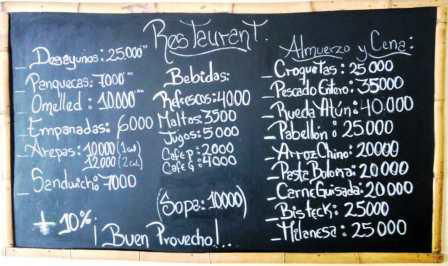 Restaurant.
_Desayunos: 25.000
_Panquecas: 7000
_Omelled: 10.000
_Empanadas: 6000
_Arepas: 10000 (1cu)
12000 (2cu)
_Sandwich: 7000
+ 10%
Bebidas:
Refrescos: 4000
Maltas 3500
Jugos: 5000
Cafe P: 2000
Cafe G: 4000
(Sopa: 10000)
¡Buen Provecho!...
Almuerzo y Cena:
_Croquetas: 25000
_Pescado Entero: 35000
_Rueda Atún: 40.000
_Pabellon: 25000
_Arroz Chino: 20000
_Pasta Bolona: 20000
_Carne Guisada: 20000
_Bisteck: 25000
_Milanesa: 25000